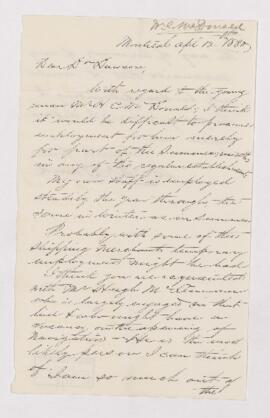 W. C. McDonald
Montreal Apl 13th 1880
Dear Dr Dawson,
With regard to the young
man Mr H. C. McDonald; I think
it would be difficult to procure
employment for him merely
for part of the Summer, months
in any of the regular establishments
My own staff is employed
steadily the year through the
same in winter as in Summer
Probably with some of the
shipping merchants temporary
employment might be had
I think you are acquainted
with Mr Hugh McLennan
who is largely engaged in that
line & who might have a
vacancy on the opening of
Navigation. He is the most
likely person I can think
of. I am so much out of
the